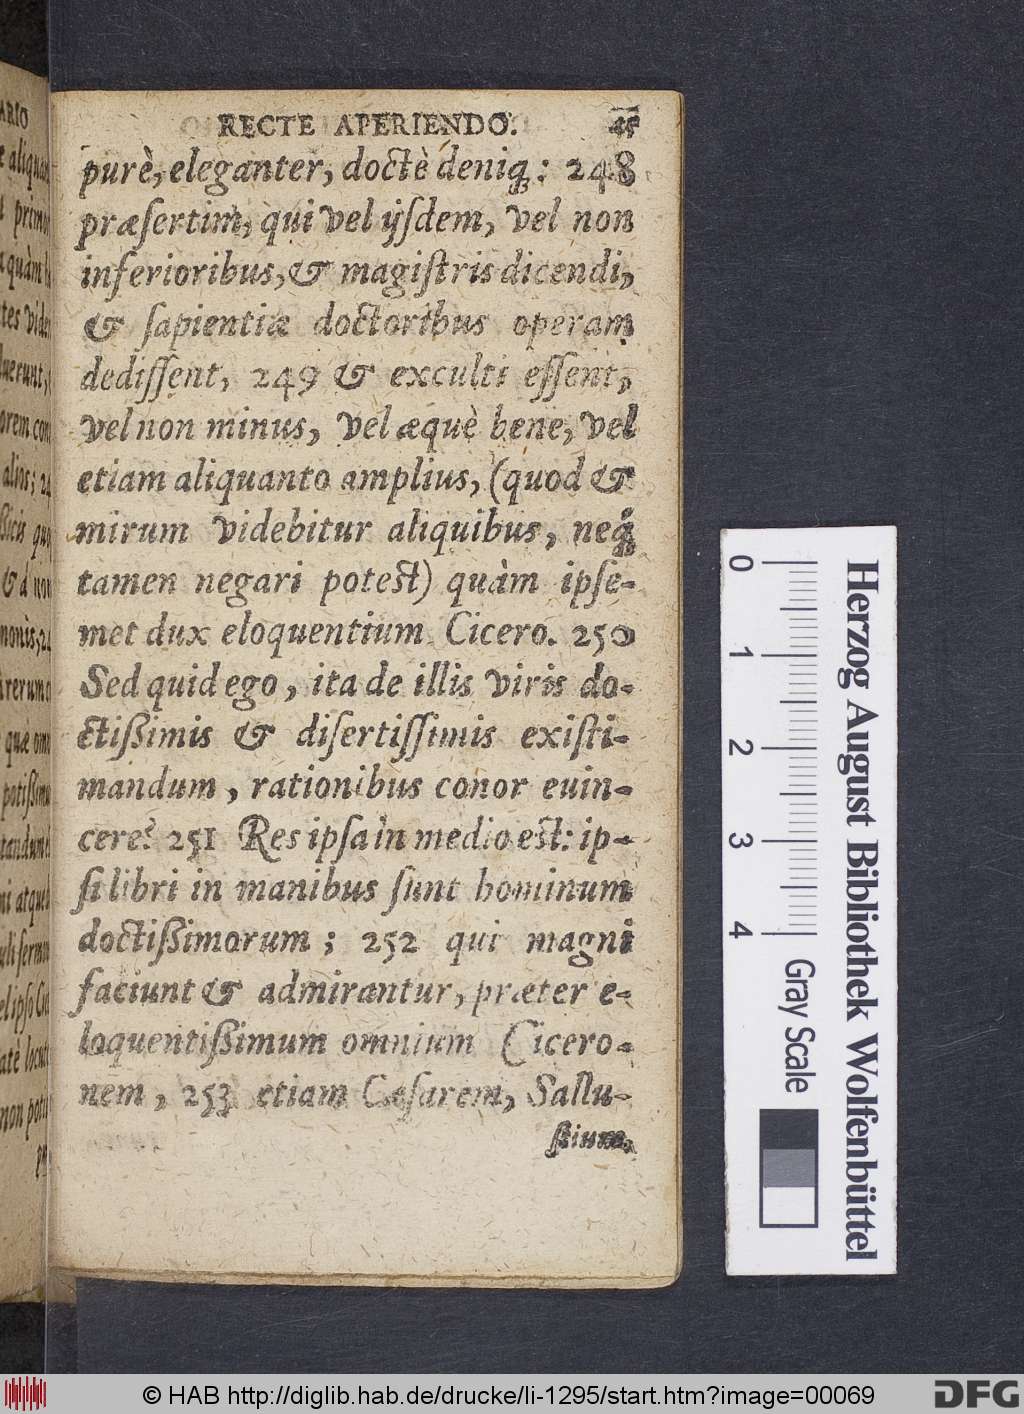 RECTE APERIENDO. 45
purè, eleganter, doctè deniq; : 248
præsertim, qui vel ijsdem, vel non
inferioribus, & magistris dicendi,
& sapientiæ doctoribus operam
dedissent, 249 & exculti essent,
vel non minus, vel æquè bene, vel
etiam aliquanto amplius, (quod &
mirum videbitur aliquibus, neq;
tamen negari potest) quàm ipse-
met dux eloquentium Cicero. 250
Sed quid ego, ita de illis viris do-
ctißimis & disertissimis existi-
mandum, rationibus conor euin-
cere? 251 Res ipsa in medio est: ip-
si libri in manibus sunt hominum
doctißimorum; 252 qui magni
faciunt & admirantur, præter e-
loquentißimum omnium Cicero-
nem, 253 etiam Cæsarem, Sallu-
stium,
Herzog August Bibliothek Wolfenbüttel
0 1 2 3 4
Gray Scale
© HAB http://diglib.hab.de/drucke/li-1295/start.htm?image=00069
DFG